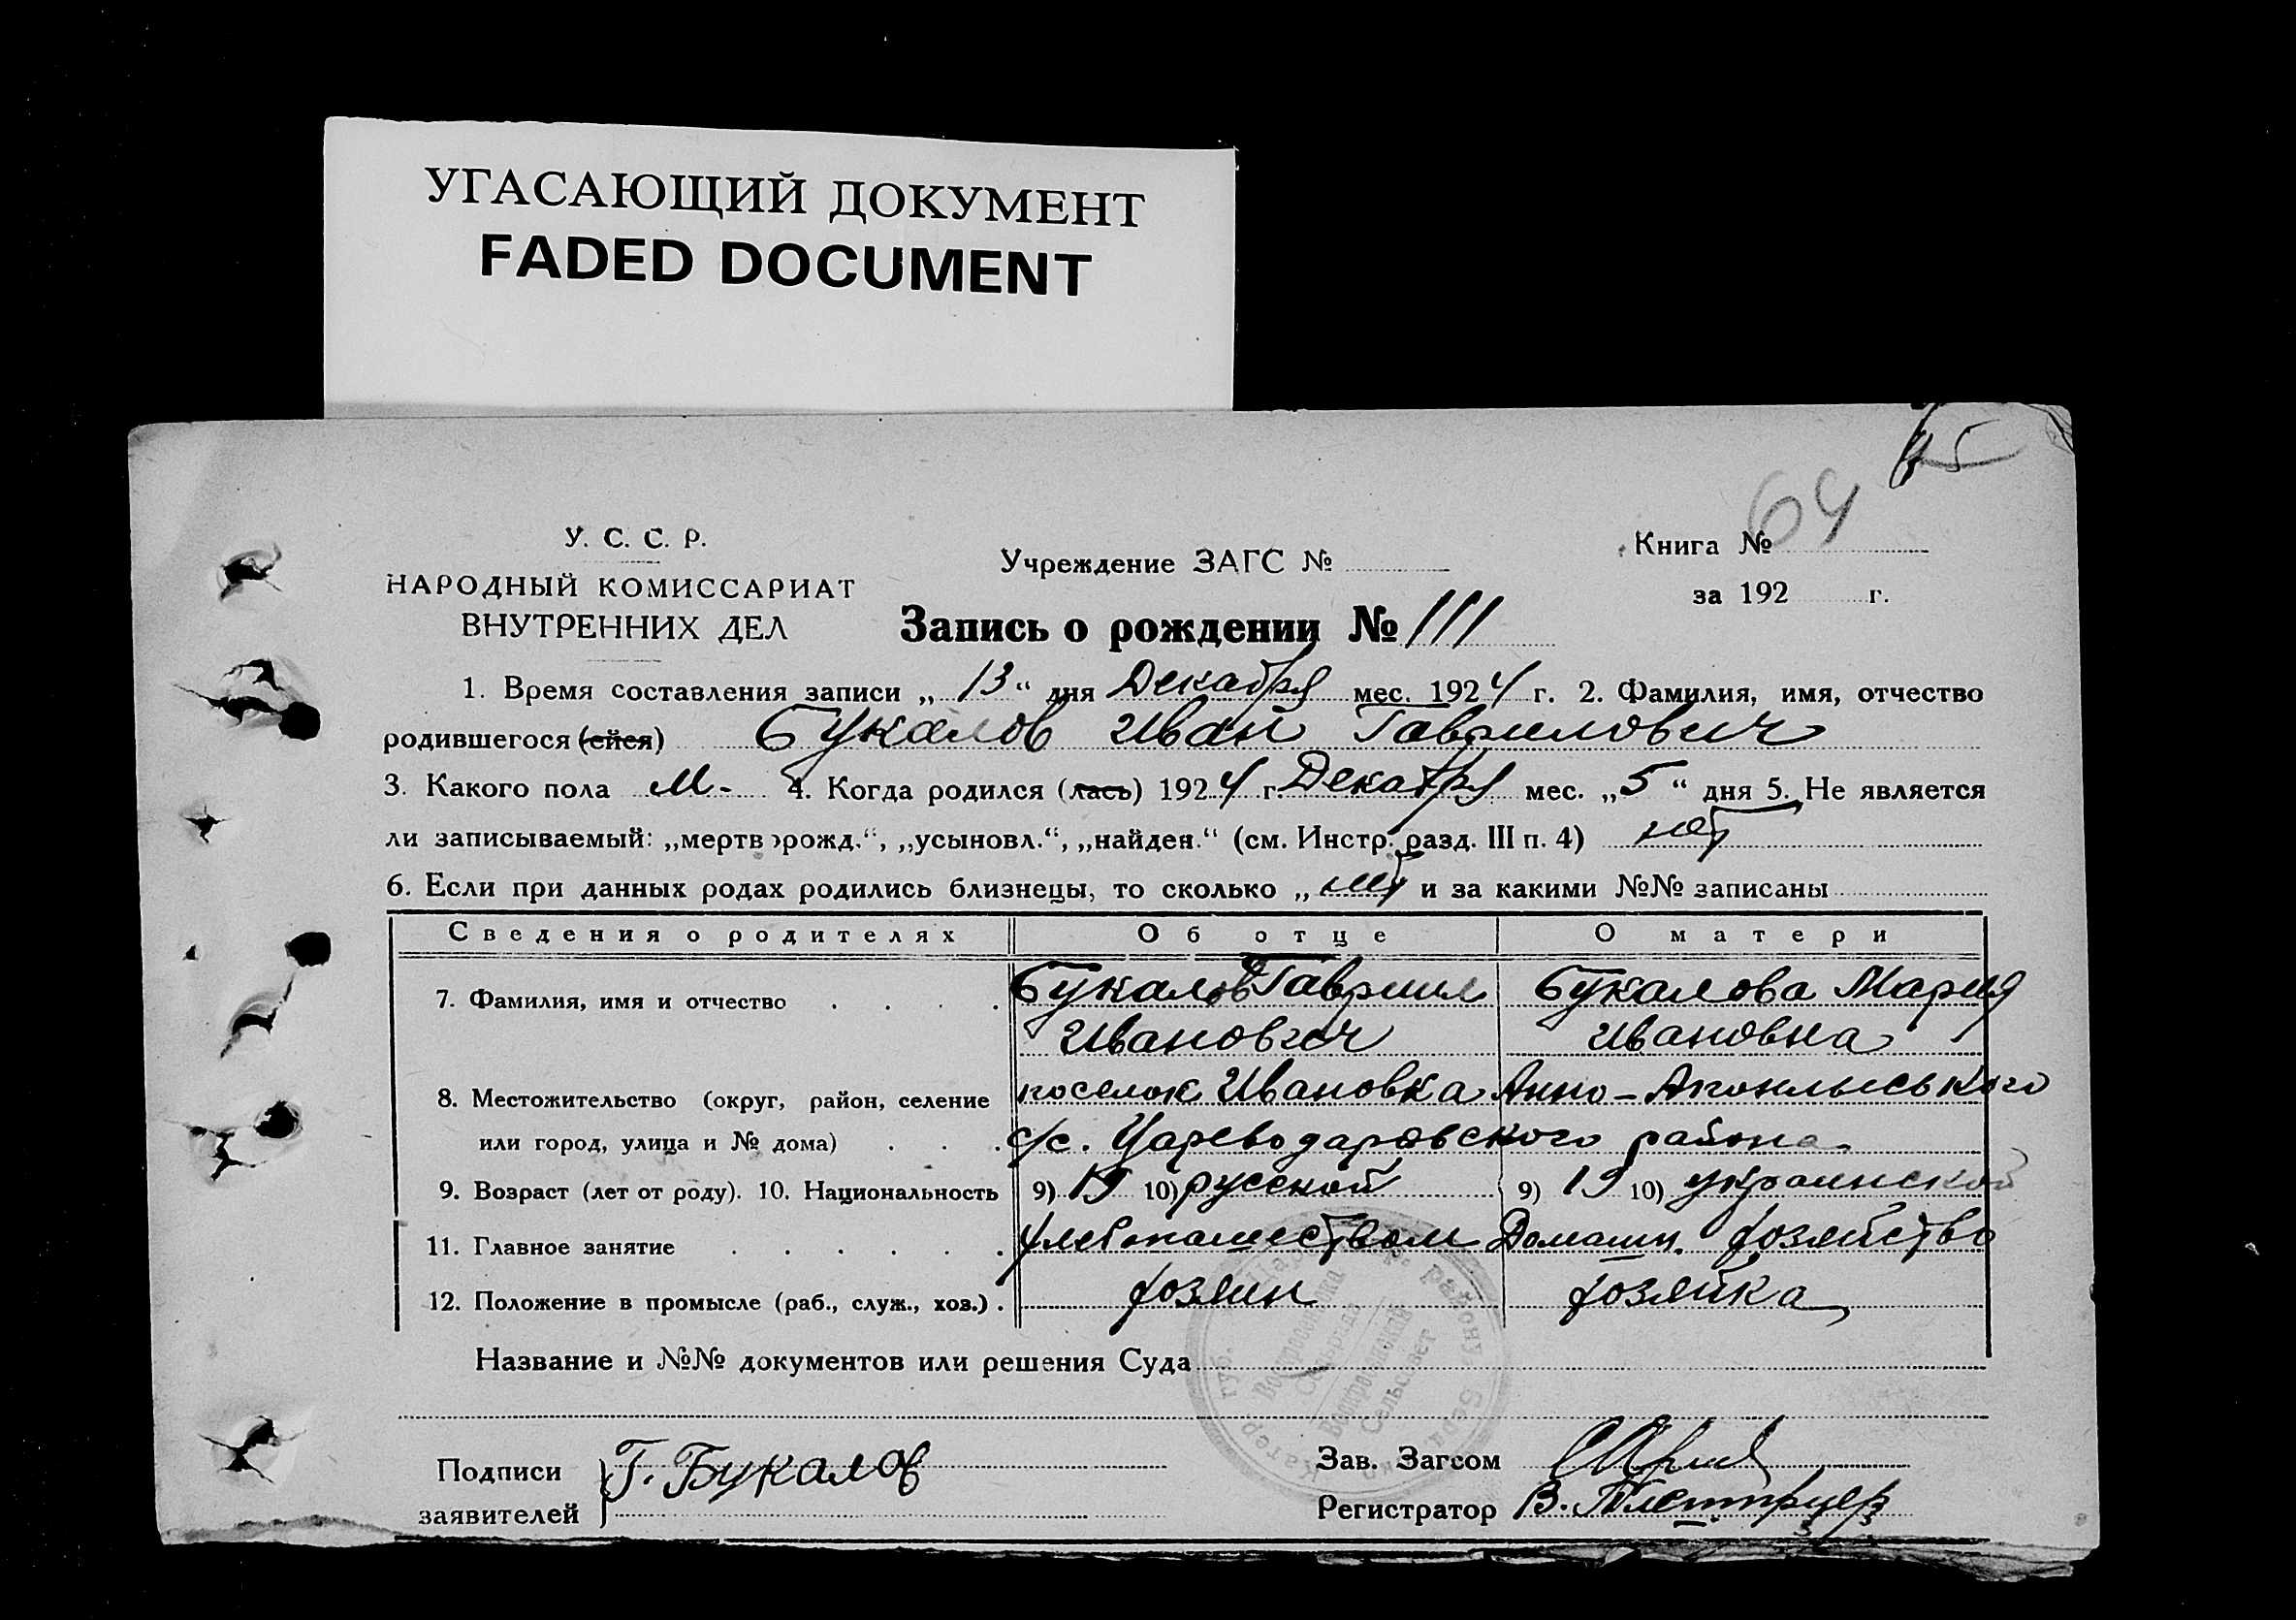 УГАСАЮЩИЙ ДОКУМЕНТ
FADED DOCUMENT
64
У. С. С. Р.
НАРОДНЫЙ КОМИССАРИАТ
ВНУТРЕННИХ ДЕЛ
Учреждение ЗАГС №
Книга №
за 192 г.
Запись о рождении № 111
1. Время составления записи „ 13 “ дня Декабря мес. 1924 г. 2. Фамилия, имя, отчество
родившегося (ейся) Букалов Иван Гаврилович
3. Какого пола М. 4. Когда родился (лась) 1924 г. Декабря мес. „5“ дня 5. Не является
ли записываемый: „мертворожд.“, „усыновл.“, „найден.“ (см. Инстр. разд. III п. 4) нет
6. Если при данных родах родились близнецы, то сколько „ нет и за какими №№ записаны
Сведения о родителях Об отце О матери
7. Фамилия, имя и отчество . . . . Букалов Гавриил Букалова Мария
Иванович Ивановна
8. Местожительство (округ, район, селение поселок Ивановка Анно-
или город, улица и № дома) . . . с/с. Царедаровского района
9. Возраст (лет от роду). 10. Национальность 9) 19 10) русской 9) 19 10) украинской
11. Главное занятие . . . . . . хлебопашеством Домашн. хозяйство
12. Положение в промысле (раб., служ., хоз.) . хозяин хозяйка
Название и №№ документов или решения Суда
Подписи
заявителей } Г. Букалов
Зав. Загсом
Регистратор В.